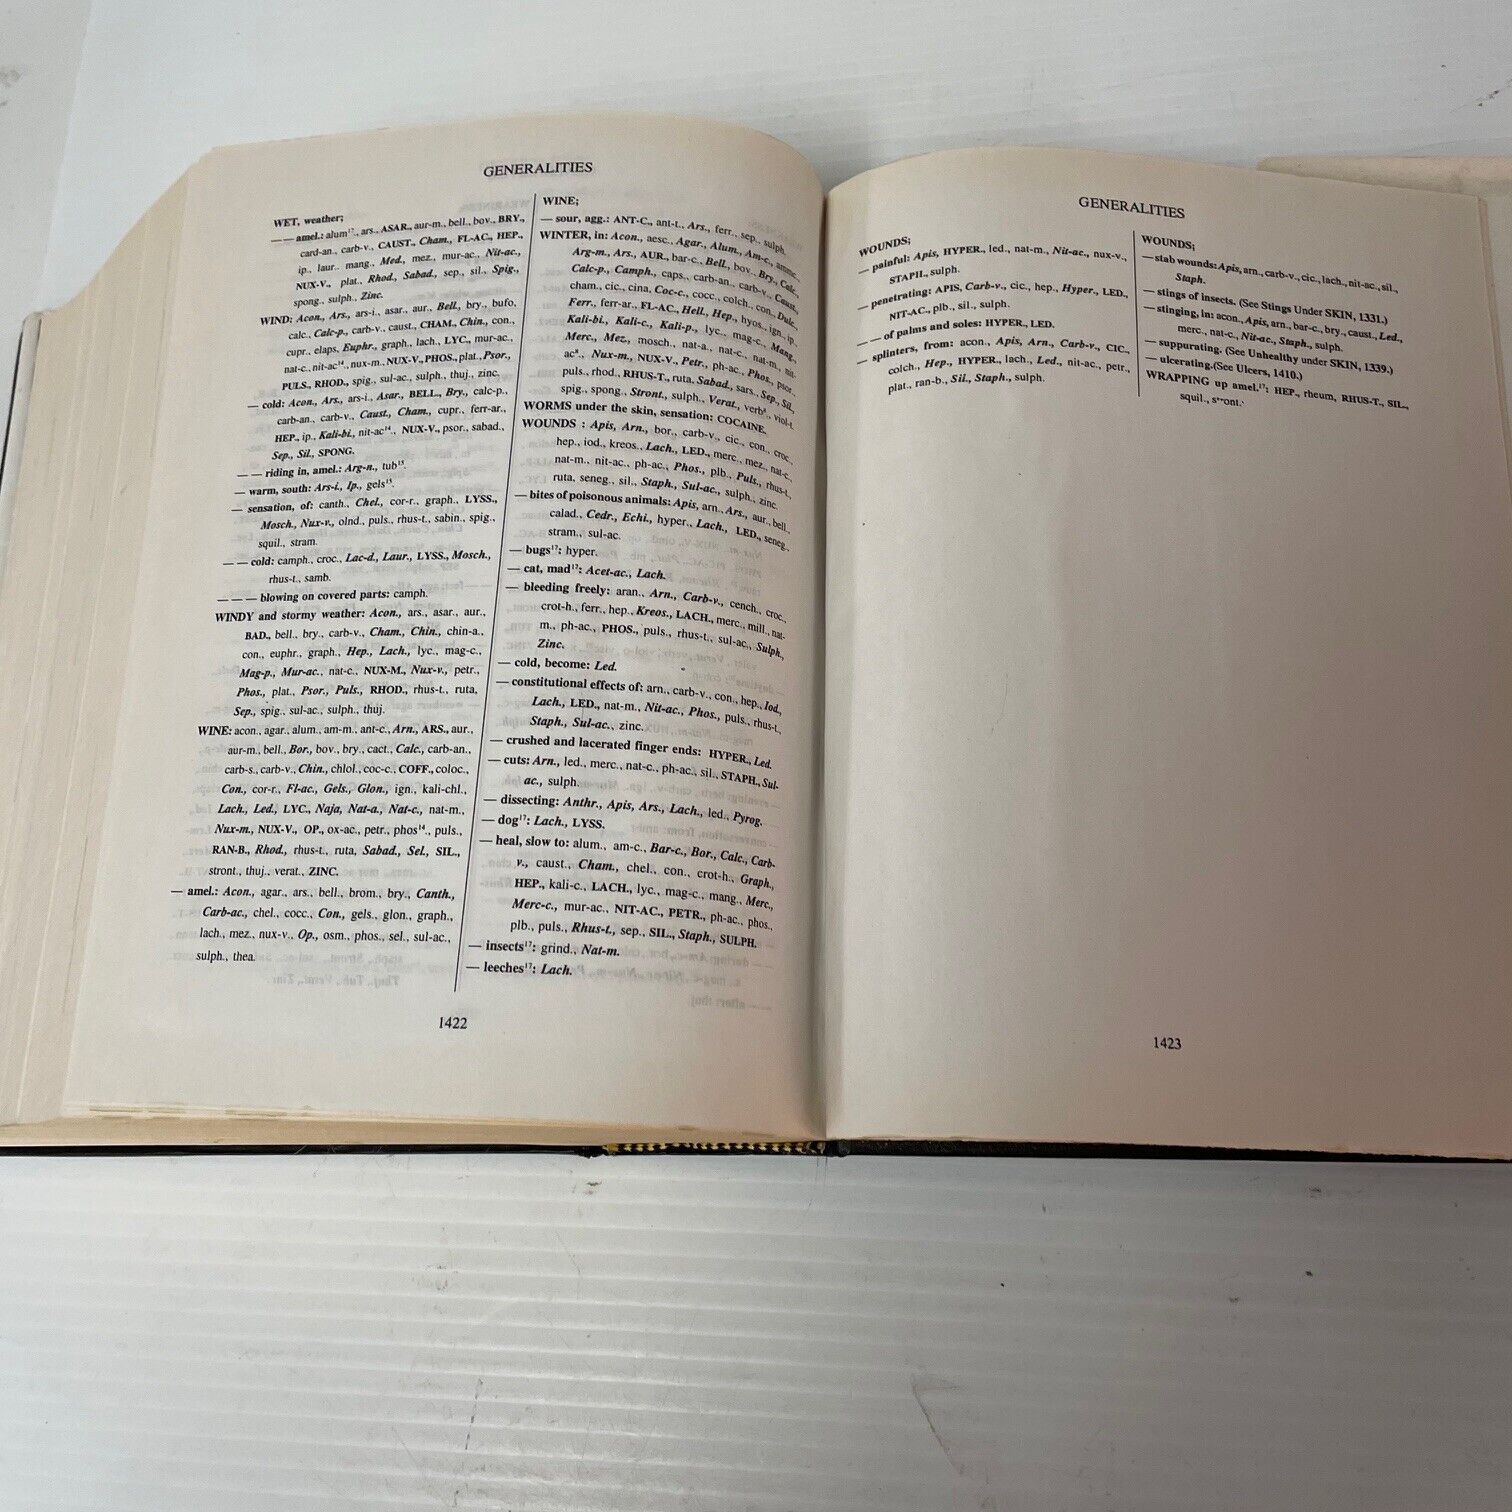 GENERALITIES
WET, weather;
— — amel.: alum¹⁷., ars., ASAR., aur-m., bell., bov., BRY.,
card-an., carb-v., CAUST., Cham., FL-AC., HEP.,
ip., laur., mang., Med., mez., mur-ac., Nit-ac.,
NUX-V., plat., Rhod., Sabad., sep., sil., Spig.,
spong., sulph., Zinc.
WIND: Acon., Ars., ars-i., asar., aur., Bell., bry., bufo,
calc., Calc-p., carb-v., caust., CHAM., Chin., con.,
cupr., elaps, Euphr., graph., lach., LYC., mur-ac.,
nat-c., nit-ac¹⁴., nux-m., NUX-V., PHOS., plat., Psor.,
PULS., RHOD., spig., sul-ac., sulph., thuj., zinc.
— cold: Acon., Ars., ars-i., Asar., BELL., Bry., calc-p.,
carb-an., carb-v., Caust., Cham., cupr., ferr-ar.,
HEP., ip., Kali-bi., nit-ac¹⁴., NUX-V., psor., sabad.,
Sep., Sil., SPONG.
— — riding in, amel.: Arg-n., tub¹⁵.
— warm, south: Ars-i., Ip., gels¹⁵.
— sensation, of: canth., Chel., cor-r., graph., LYSS.,
Mosch., Nux-v., olnd., puls., rhus-t., sabin., spig.,
squil., stram.
— — cold: camph., croc., Lac-d., Laur., LYSS., Mosch.,
rhus-t., samb.
— — — blowing on covered parts: camph.
WINDY and stormy weather: Acon., ars., asar., aur.,
BAD., bell., bry., carb-v., Cham., Chin., chin-a.,
con., euphr., graph., Hep., Lach., lyc., mag-c.,
Mag-p., Mur-ac., nat-c., NUX-M., Nux-v., petr.,
Phos., plat., Psor., Puls., RHOD., rhus-t., ruta,
Sep., spig., sul-ac., sulph., thuj.
WINE: acon., agar., alum., am-m., ant-c., Arn., ARS., aur.,
aur-m., bell., Bor., bov., bry., cact., Calc., carb-an.,
carb-s., carb-v., Chin., chlol., coc-c., COFF., coloc.,
Con., cor-r., Fl-ac., Gels., Glon., ign., kali-chl.,
Lach., Led., LYC., Naja, Nat-a., Nat-c., nat-m.,
Nux-m., NUX-V., OP., ox-ac., petr., phos¹⁴., puls.,
RAN-B., Rhod., rhus-t., ruta, Sabad., Sel., SIL.,
stront., thuj., verat., ZINC.
— amel.: Acon., agar., ars., bell., brom., bry., Canth.,
Carb-ac., chel., cocc., Con., gels., glon., graph.,
lach., mez., nux-v., Op., osm., phos., sel., sul-ac.,
sulph., thea.
WINE;
— sour, agg.: ANT-C., ant-t., Ars., ferr., sep., sulph.
WINTER, in: Acon., aesc., Agar., Alum., Am-c., ammc.,
Arg-m., Ars., AUR., bar-c., Bell., bov., Bry., Calc.,
Calc-p., Camph., caps., carb-an., carb-v., Caust.,
cham., cic., cina, Coc-c., cocc., colch., con., Dulc.,
Ferr., ferr-ar., FL-AC., Hell., Hep., hyos., ign., ip.,
Kali-bi., Kali-c., Kali-p., lyc., mag-c., Mang.,
Merc., Mez., mosch., nat-a., nat-c., nat-m., nit-
ac⁸., Nux-m., NUX-V., Petr., ph-ac., Phos., psor.,
puls., rhod., RHUS-T., ruta, Sabad., sars., Sep., Sil.,
spig., spong., Stront., sulph., Verat., verb⁸., viol-t.
WORMS under the skin, sensation: COCAINE.
WOUNDS : Apis, Arn., bor., carb-v., cic., con., croc.,
hep., iod., kreos., Lach., LED., merc., mez., nat-c.,
nat-m., nit-ac., ph-ac., Phos., plb., Puls., rhus-t.,
ruta, seneg., sil., Staph., Sul-ac., sulph., zinc.
— bites of poisonous animals: Apis, arn., Ars., aur., bell.,
calad., Cedr., Echi., hyper., Lach., LED., seneg.,
stram., sul-ac.
— bugs¹⁷: hyper.
— cat, mad¹⁷: Acet-ac., Lach.
— bleeding freely: aran., Arn., Carb-v., cench., croc.,
crot-h., ferr., hep., Kreos., LACH., merc., mill., nat-
m., ph-ac., PHOS., puls., rhus-t., sul-ac., Sulph.,
Zinc.
— cold, become: Led.
— constitutional effects of: arn., carb-v., con., hep., Iod.,
Lach., LED., nat-m., Nit-ac., Phos., puls., rhus-t.,
Staph., Sul-ac., zinc.
— crushed and lacerated finger ends: HYPER., Led.
— cuts: Arn., led., merc., nat-c., ph-ac., sil., STAPH., Sul-
ac., sulph.
— dissecting: Anthr., Apis, Ars., Lach., led., Pyrog.
— dog¹⁷: Lach., LYSS.
— heal, slow to: alum., am-c., Bar-c., Bor., Calc., Carb-
v., caust., Cham., chel., con., crot-h., Graph.,
HEP., kali-c., LACH., lyc., mag-c., mang., Merc.,
Merc-c., mur-ac., NIT-AC., PETR., ph-ac., phos.,
plb., puls., Rhus-t., sep., SIL., Staph., SULPH.
— insects¹⁷: grind., Nat-m.
— leeches¹⁷: Lach.
1422
GENERALITIES
WOUNDS;
— painful: Apis, HYPER., led., nat-m., Nit-ac., nux-v.,
STAPH., sulph.
— penetrating: APIS, Carb-v., cic., hep., Hyper., LED.,
NIT-AC., plb., sil., sulph.
— — of palms and soles: HYPER., LED.
— splinters, from: acon., Apis, Arn., Carb-v., CIC.,
colch., Hep., HYPER., lach., Led., nit-ac., petr.,
plat., ran-b., Sil., Staph., sulph.
WOUNDS;
— stab wounds: Apis, arn., carb-v., cic., lach., nit-ac., sil.,
Staph.
— stings of insects. (See Stings Under SKIN, 1331.)
— stinging, in: acon., Apis, arn., bar-c., bry., caust., Led.,
merc., nat-c., Nit-ac., Staph., sulph.
— suppurating. (See Unhealthy under SKIN, 1339.)
— ulcerating.(See Ulcers, 1410.)
WRAPPING up amel.¹⁷: HEP., rheum, RHUS-T., SIL.,
squil., stront.
1423